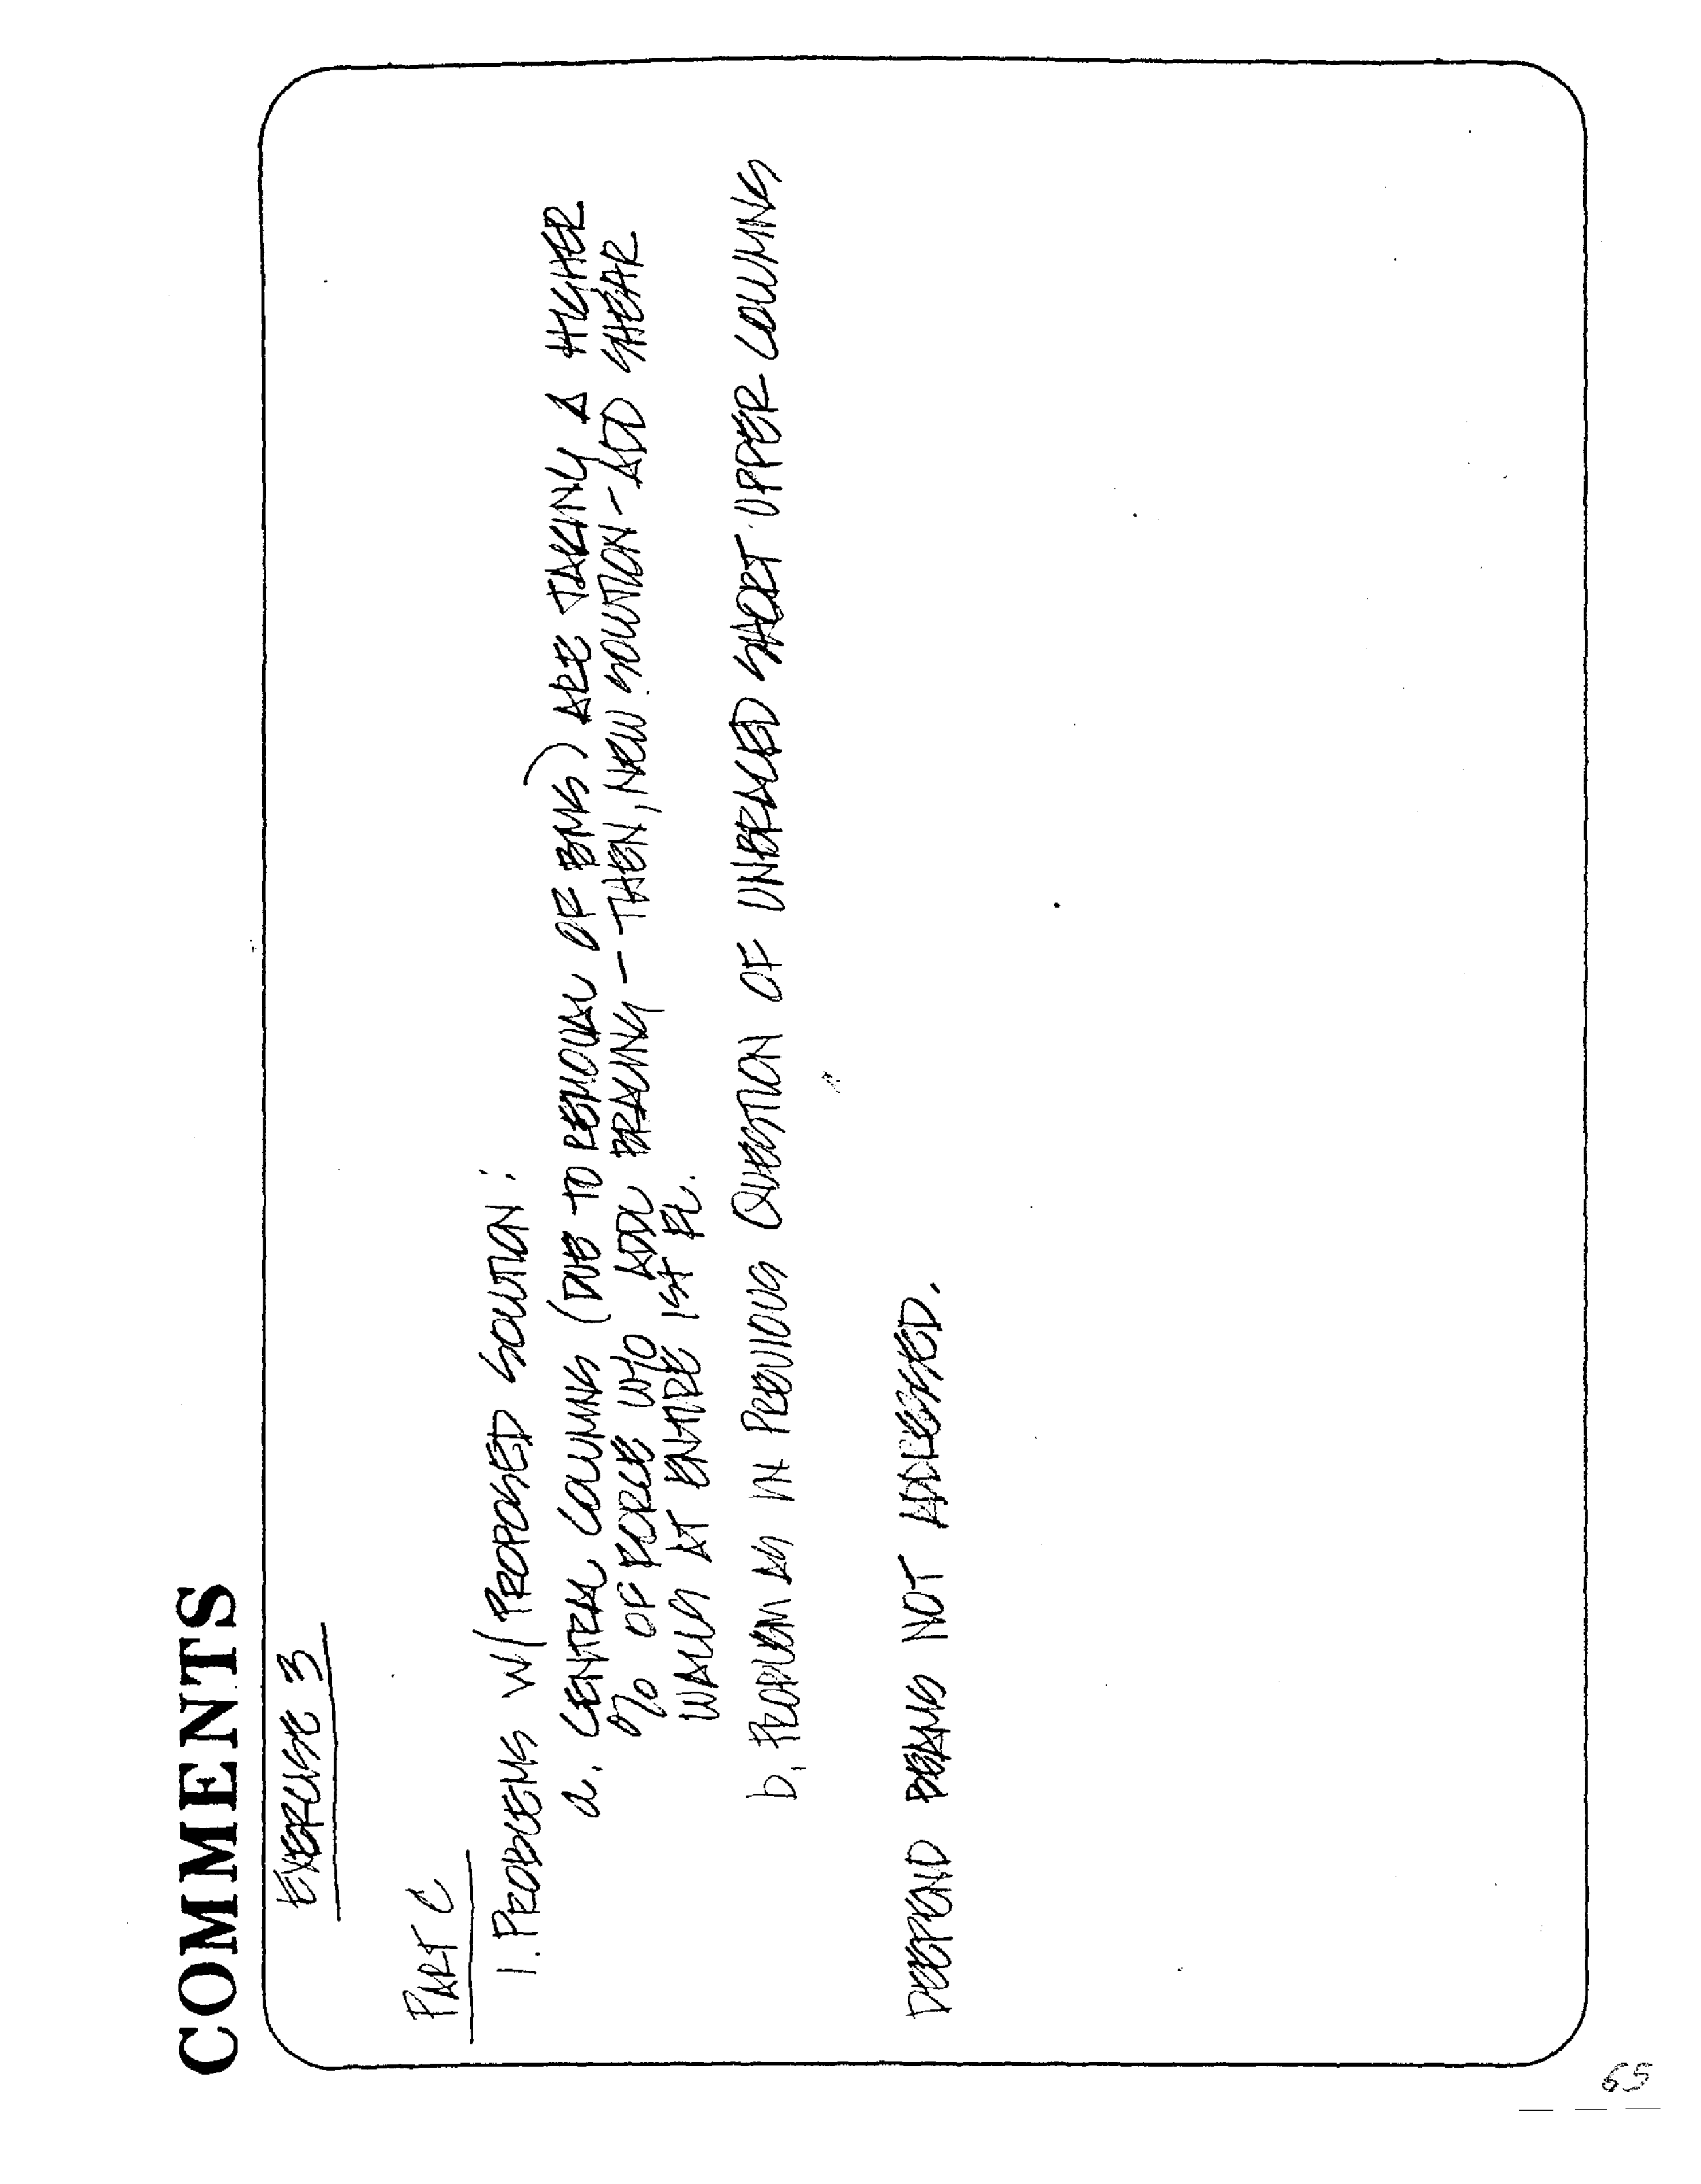 COMMENTS
EXERCISE 3
PART C
1. PROBLEMS W/ PROPOSED SOLUTION:
a. CENTRAL COLUMNS (DUE TO REMOVAL OF BMS) ARE TAKING A HIGHER
% OF FORCE W/O ADDL BRACING - THEN, NEW SOLUTION - ADD SHEAR
WALLS AT ENTIRE 1ST FL.
b. PROBLEM AS IN PREVIOUS QUESTION OF UNBRACED SHORT UPPER COLUMNS
DEEPEND BEAMS NOT ADDRESSED.
65